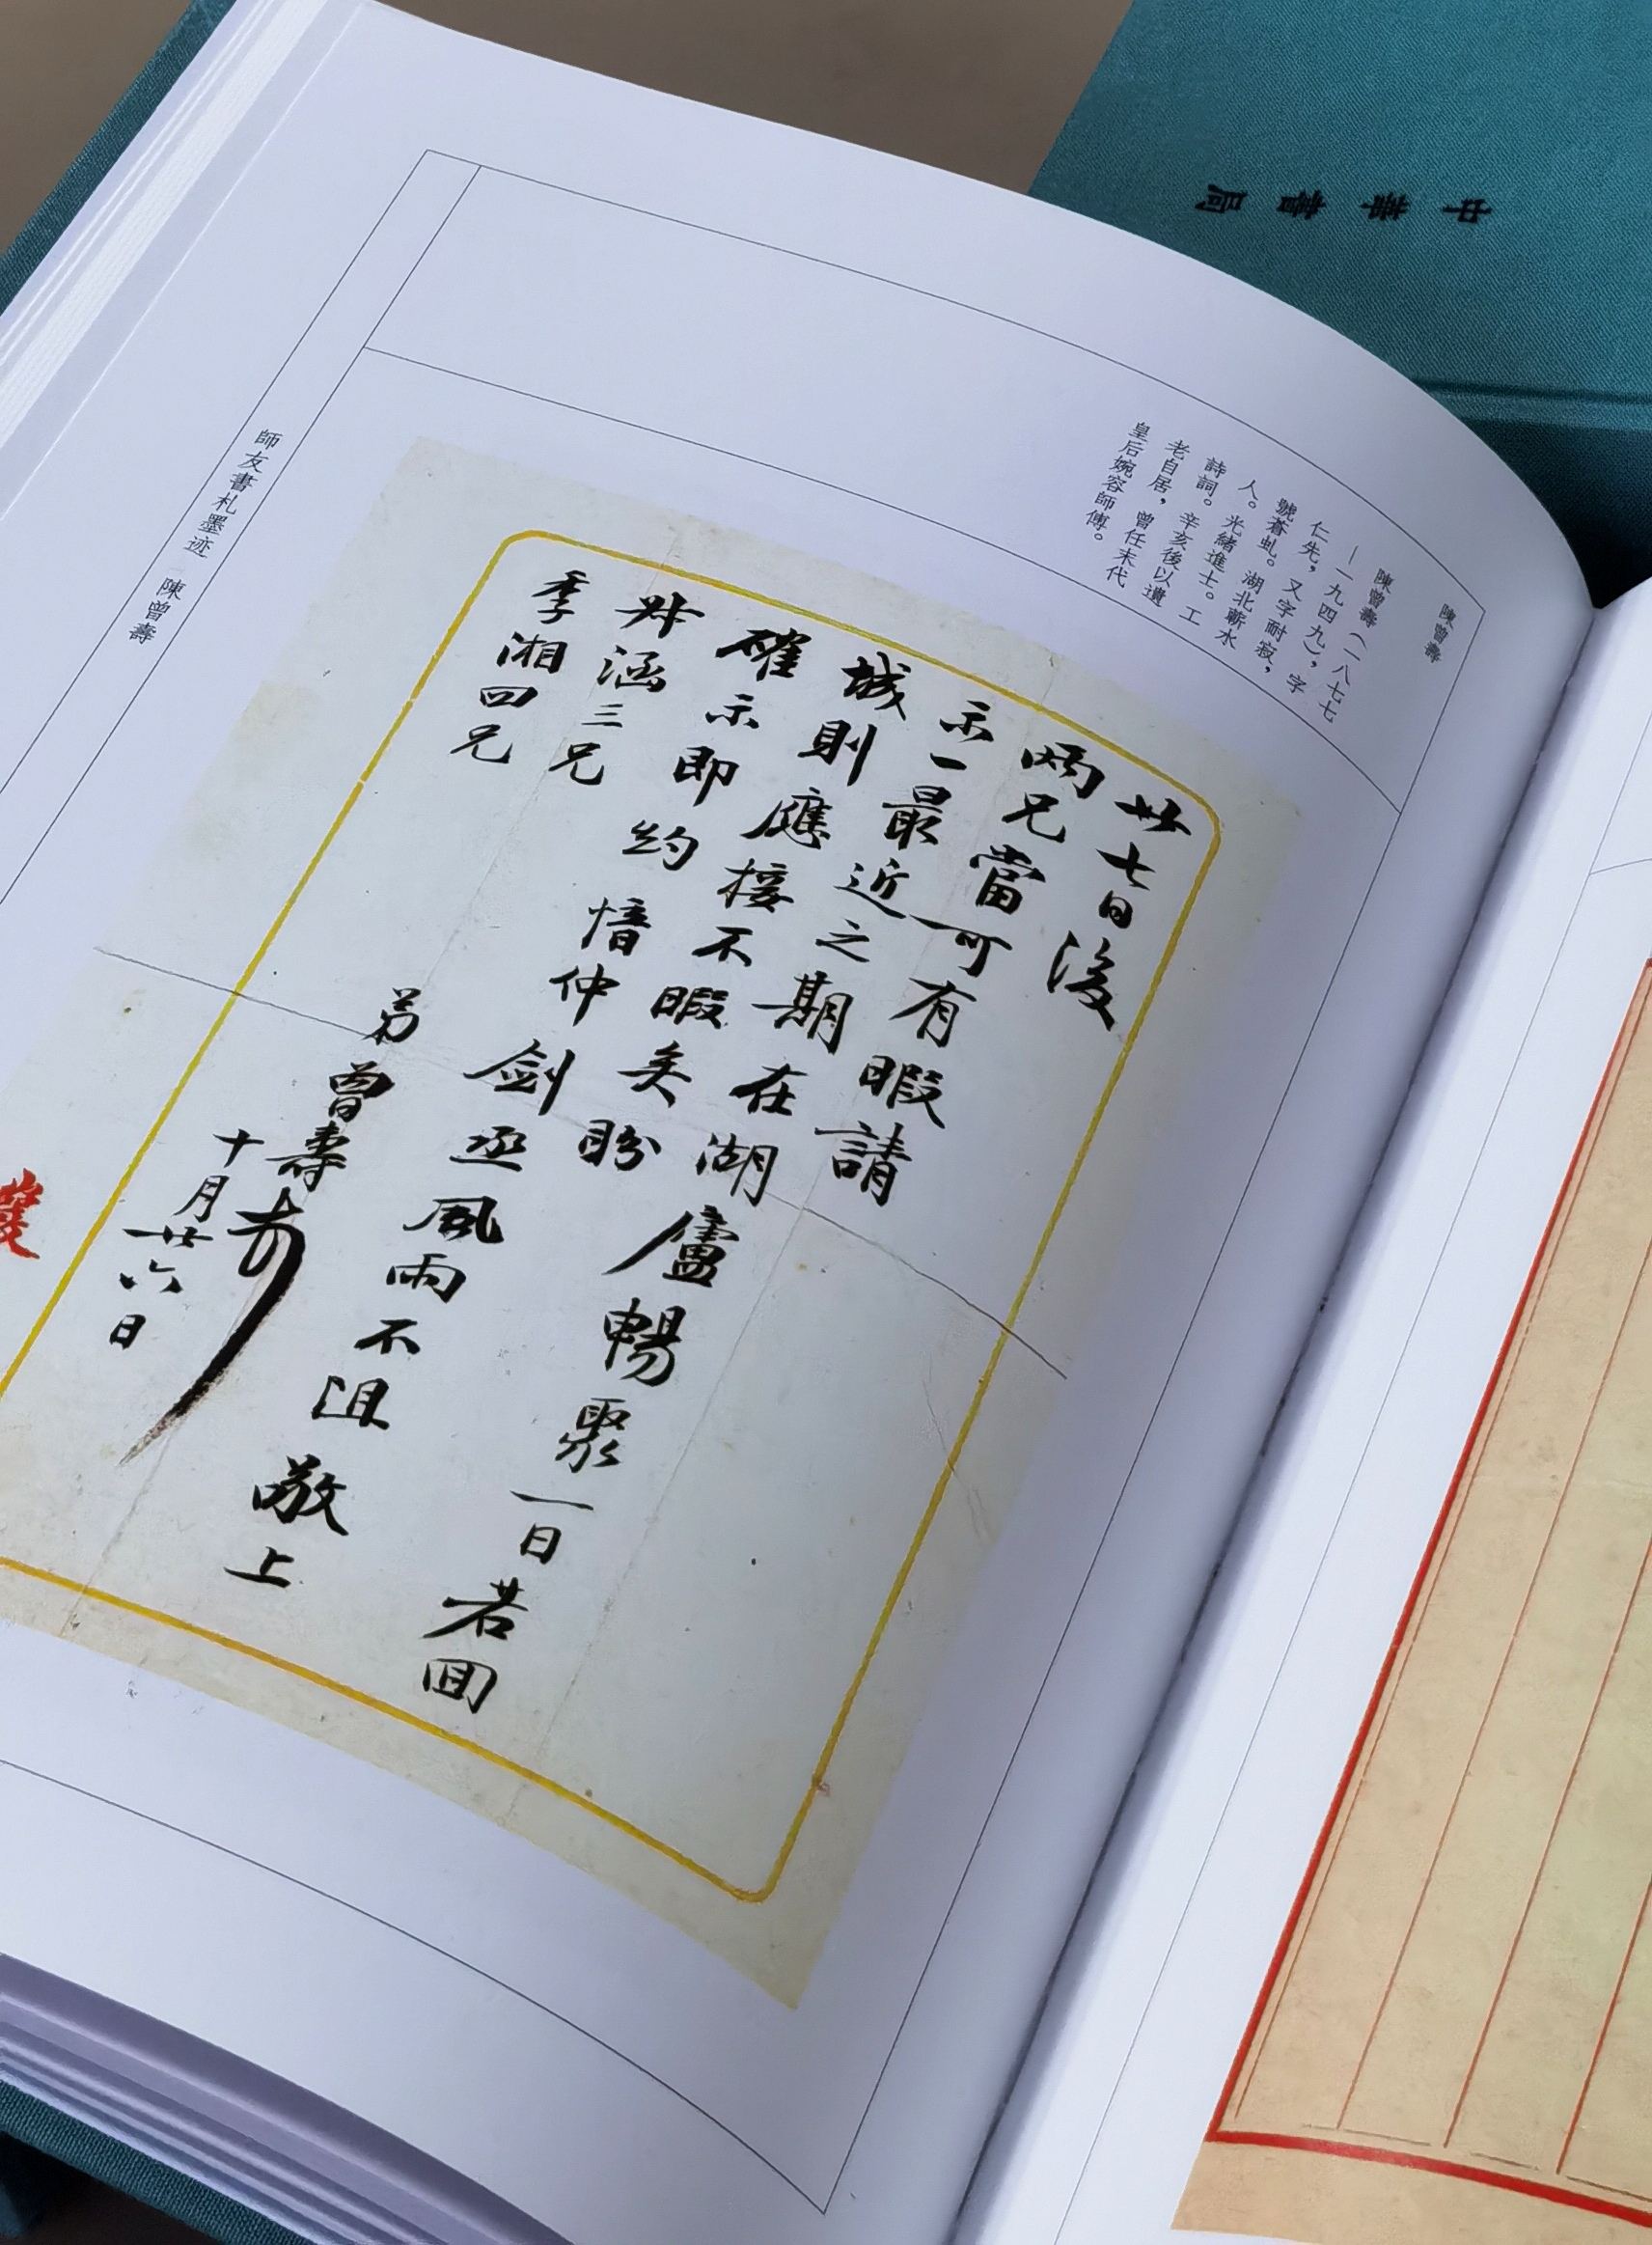 中華書局
陳曾壽
陳曾壽（一八七七
—一九四九），字
仁先，又字耐寂，
號蒼虬。湖北蘄水
人。光緒進士。工
詩詞。辛亥後以遺
老自居，曾任末代
皇后婉容師傅。
廿七日後
兩兄當可有暇請
示一最近之期在湖廬暢聚一日若回
城則應接不暇矣盼
確示即約愔仲劍丞風雨不阻敬上
叔涵三兄
季湘四兄
弟曾壽
十月廿六日
師友書札墨迹 陳曾壽